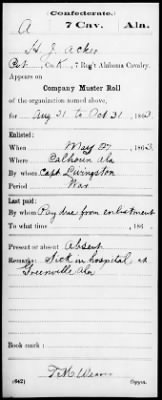 Confederate.
A 7 Cav. Ala.
H J Acker
Pvt, Co. K, 7 Reg't Alabama Cavalry.
Appears on
Company Muster Roll
of the organization named above,
for Aug 31 to Oct 31, 1863
Enlisted:
When May 27, 1863
Where Calhoun Ala
By whom Capt Livingston
Period War
Last paid:
By whom Pay due from enlistment
To what time , 186
Present or absent Absent
Remarks: Sick in hospital at
Greenville Ala
Book mark:
(642) Copyist.